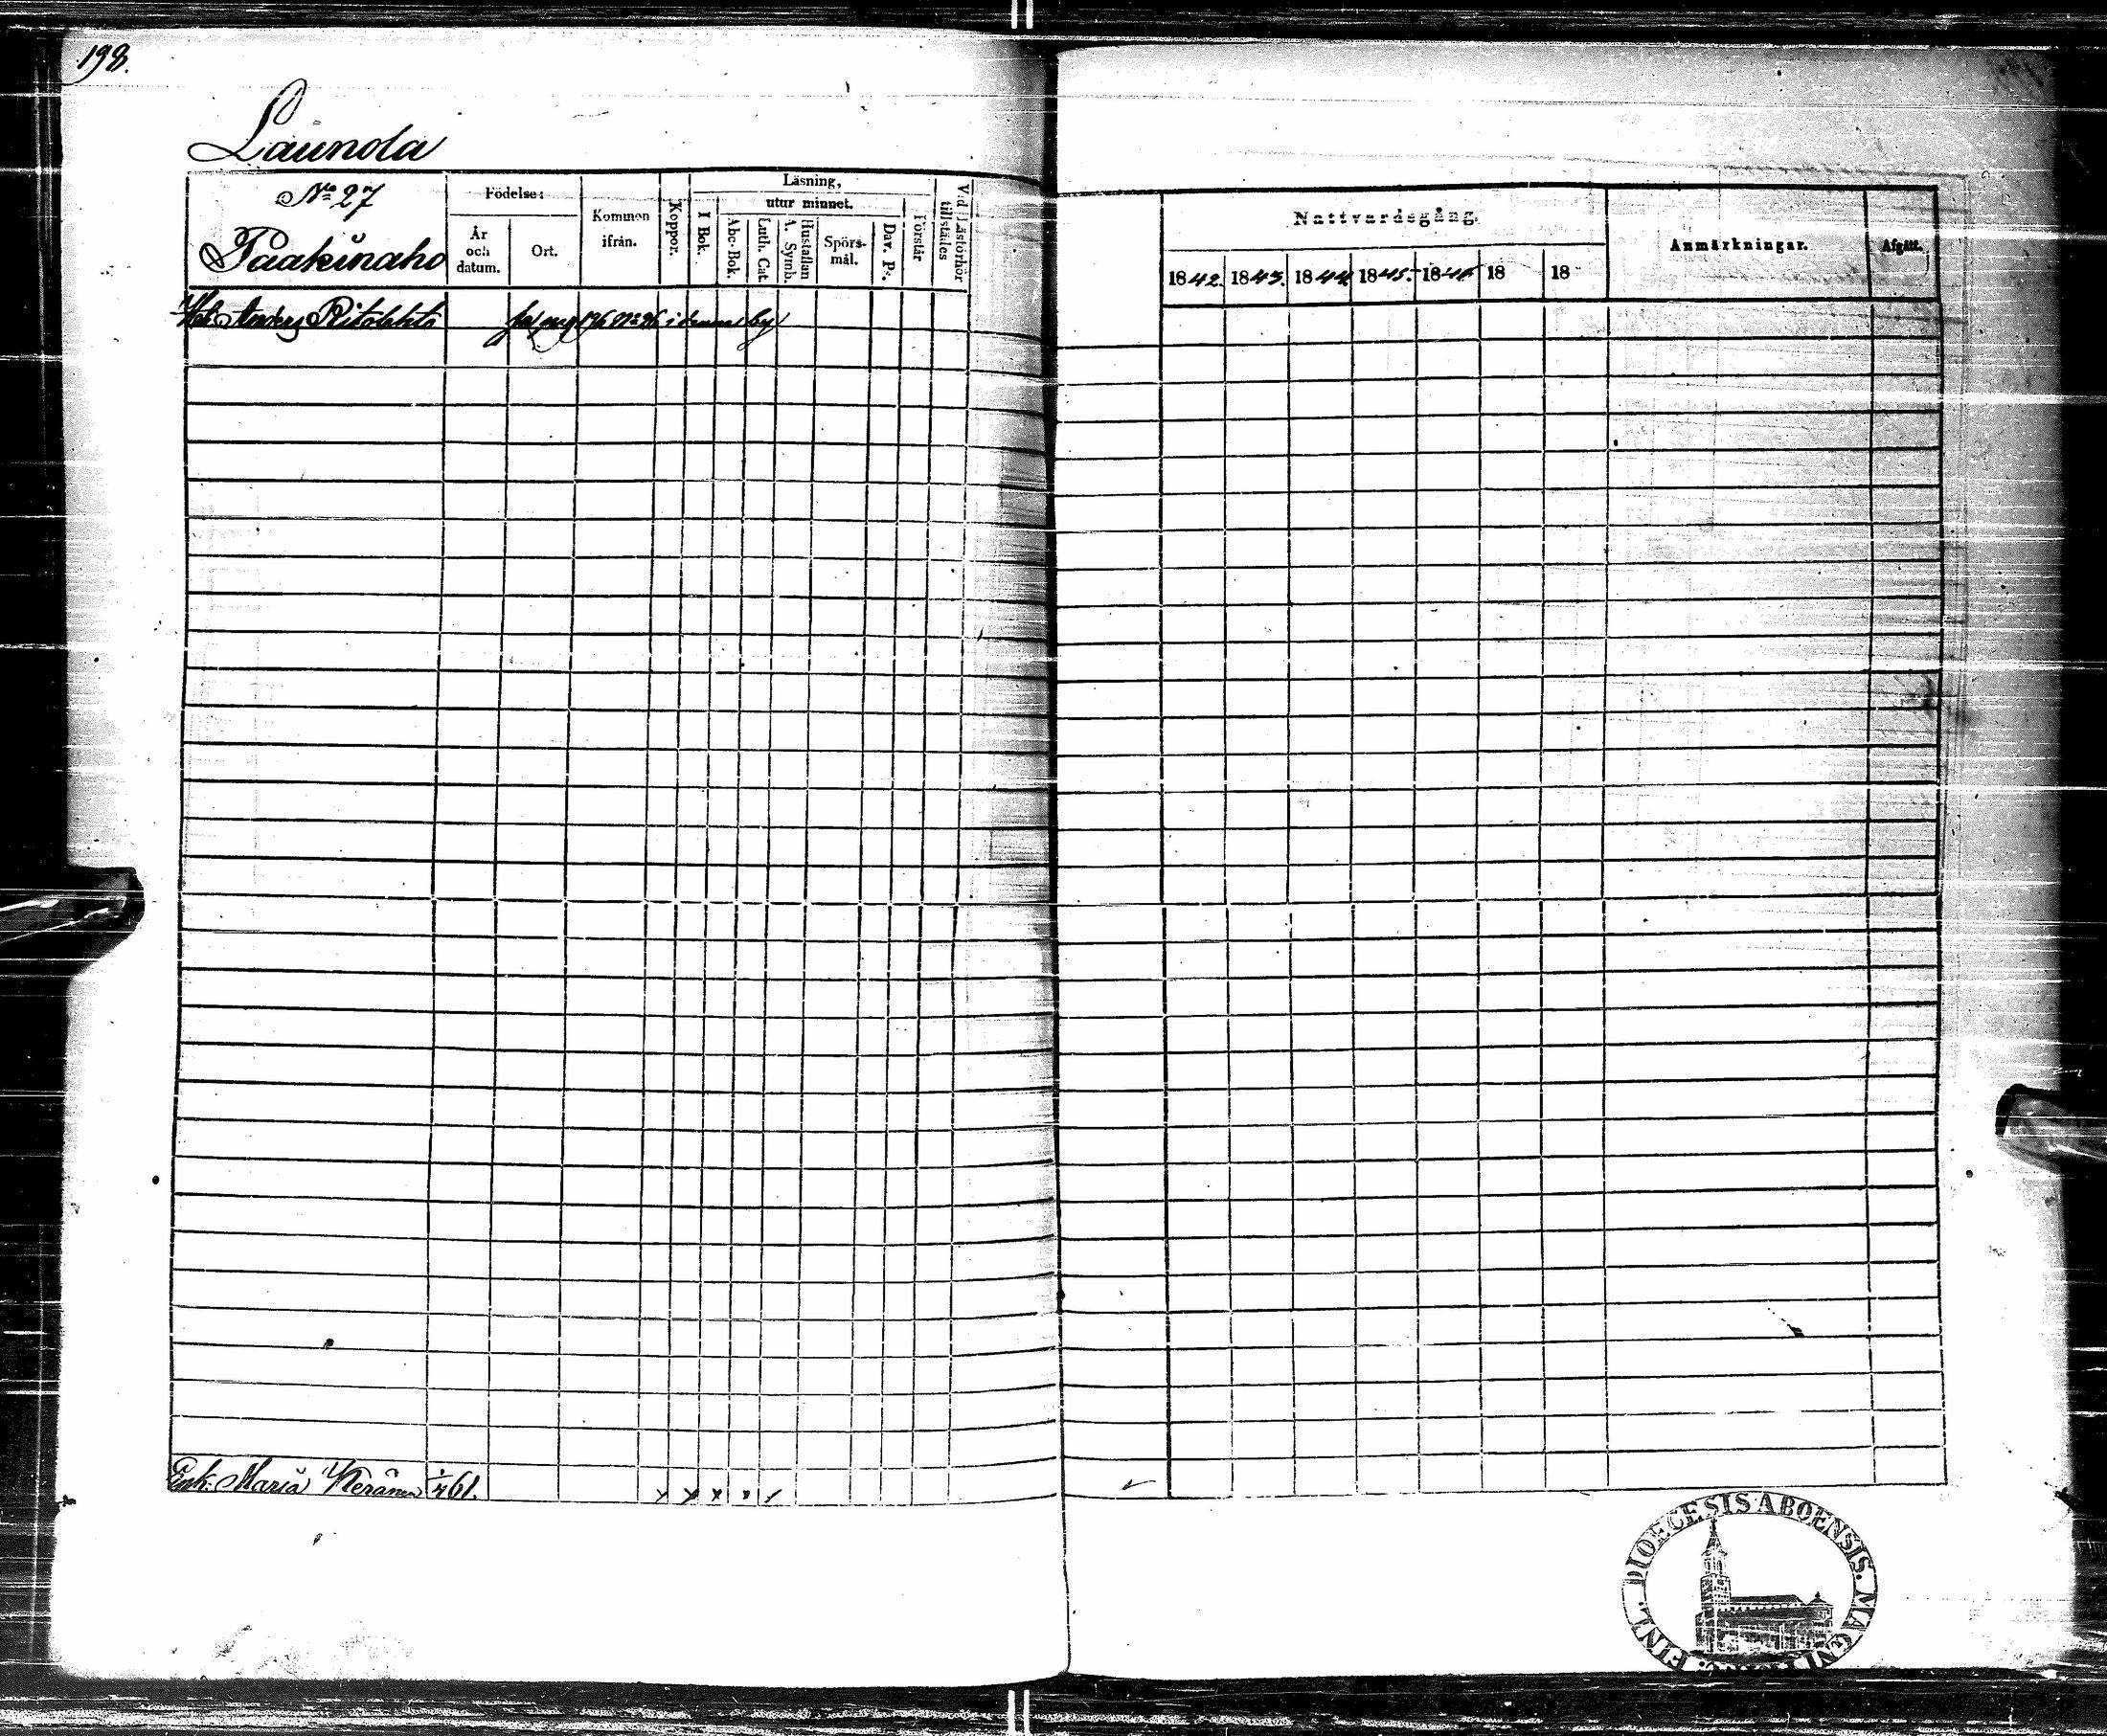 198.
Launola
No 27
Paakinaho
Födelse:
År och datum.
Ort.
Kommen ifrån.
Koppor.
Läsning,
I Bok.
utur minnet.
Abc-Bok.
Luth. Cat.
A. Symb.
Hustaflan
Spörs-mål.
Dav. Ps.
Förstår
Vid Läsförhör tillstädes
Nattvardsgång.
1842. 1843. 1844 1845. 1846 18 18
Anmärkningar.
Afgått.
Anders Ritolahti pag 196 No 26 i denna by
Enk. Maria Keränen 61.
DIOECESIS ABOENSIS. MAGNI FINL.